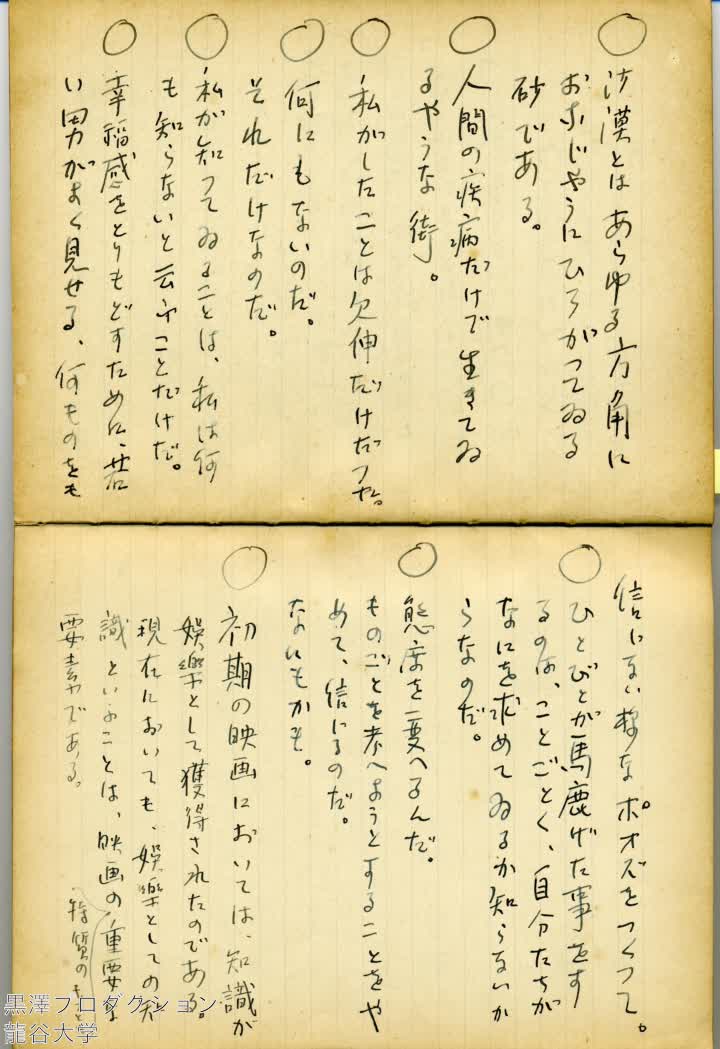 ○沙漠とはあらゆる方角に
おなじやうにひろがつてゐる
砂である。
○人間の疾病だけで生きてゐ
るやうな街。
○私がしたことは欠伸だけだつた。
○何にもないのだ。
それだけなのだ。
○私が知つてゐることは、私は何
も知らないと云ふことだけだ。
○幸福感をとりもどすために、若
い男がよく見せる、何ものをも
信じない様なポオズをつくつて。
○ひとびとが馬鹿げた事をす
るのは、ことごとく、自分たちが
なにを求めてゐるか知らないか
らなのだ。
○態度を変へるんだ。
ものごとを考へようとすることをや
めて、信じるのだ。
なにもかも。
○初期の映画においては、知識が
娯楽として獲得されたのである。
現在においても、娯楽としての知
識といふことは、映画の重要な
要素である。
特質の
黒澤プロダクション
龍谷大学